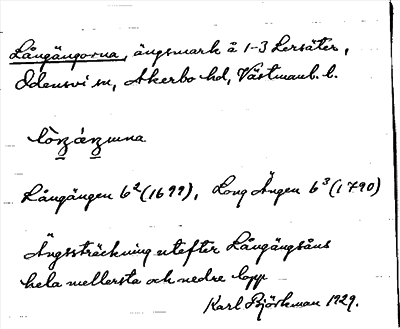 Långängorna, ängsmark å 1-3 Lersäter,
Odensvi sn, Åkerbo hd, Västmanl. l.
Långängen 6²(1699), Long Ängen 6³(1790)
Ängssträckning utefter Långängsåns
hela mellersta och nedre lopp
Karl Björkman 1929.